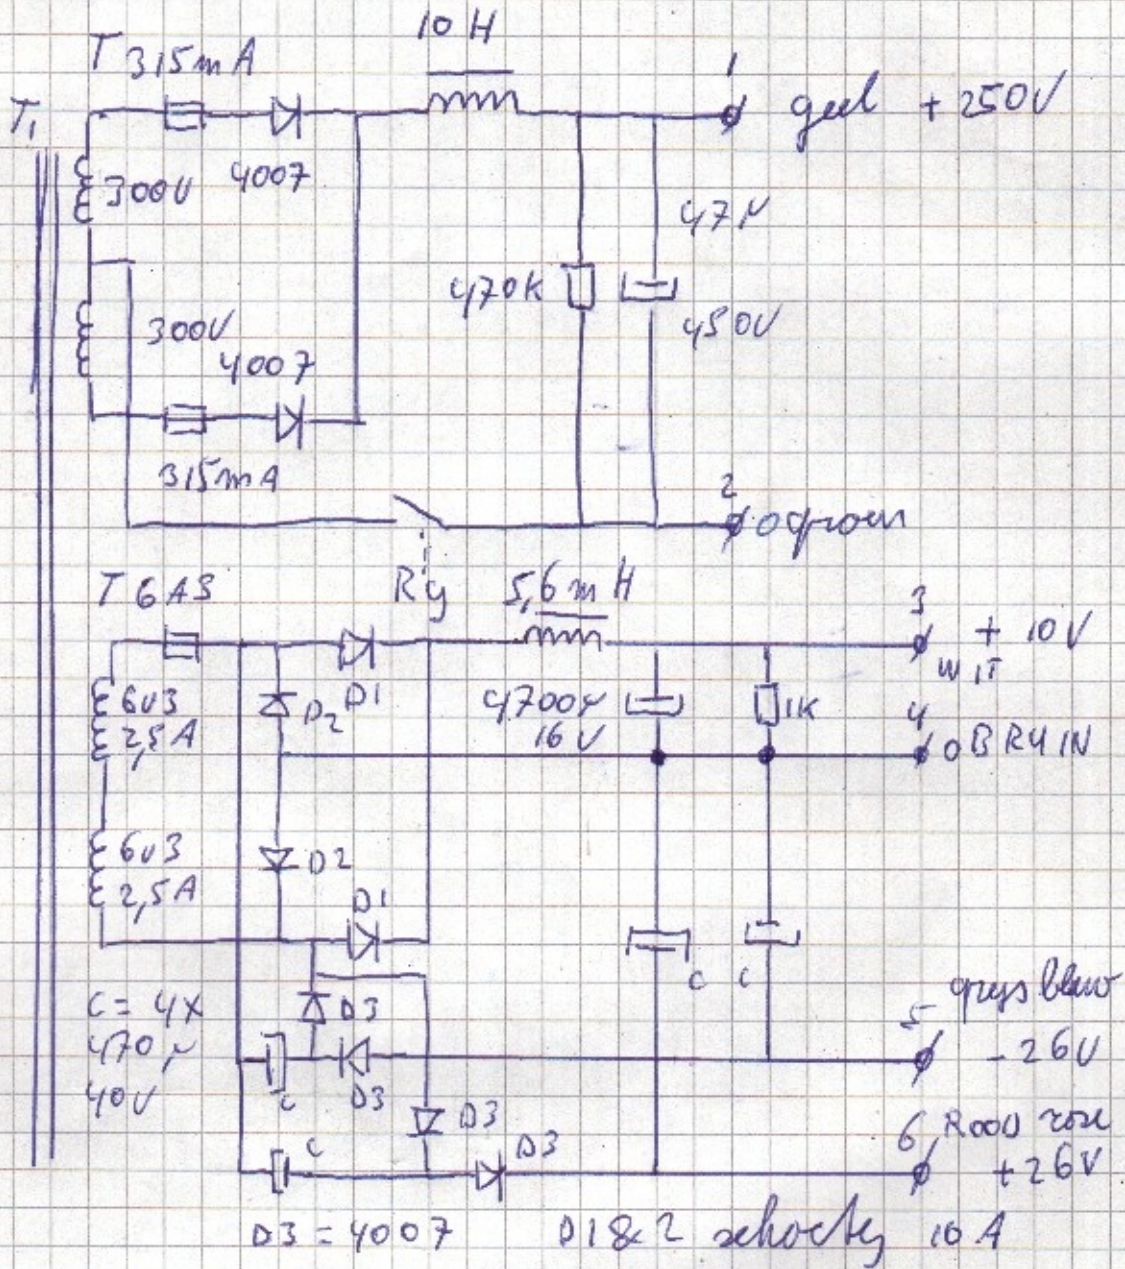 10 H
T 315mA
1
geel + 250V
T1
300V
4007
47µ
470K
450V
300V
4007
315mA
2
0 groen
Ry
T 6A3
5,6 mH
3
+ 10V
WIT
6V3
2,5A
D2
D1
4700µ
16V
1K
4
0 BRUIN
6V3
2,5A
D2
D1
C = 4x
470µ
40V
D3
D3
C
C
C
grys blauw
5
-26V
D3
C
D3
6
Rood rose
+26V
D3 = 4007
D1 & 2 schocky 10A